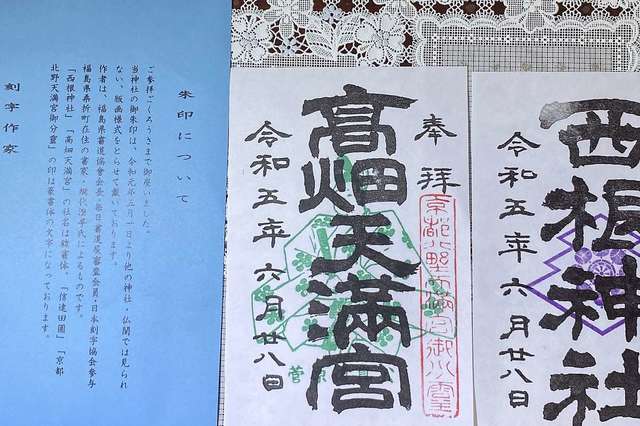 朱印について
ご参拝ごくろうさまで御座いました。
当神社の御朱印は、令和元年五月一日より他の神社・仏閣では見られ
ない、版画様式をとらせて戴いております。
作者は、福島県書道協会会長・毎日書道展審査会員・日本刻字協会参与
福島県桑折町在住の書家
によるものです。
「西根神社」「高畑天満宮」の社名は隷書体、「信達田園」「京都
北野天満宮御分霊」の印は篆書体の文字になっております。
刻字作家
奉拝
京都北野天満宮御分霊
高畑天満宮
菅
令和五年六月廿八日
西根神社
令和五年六月廿八日